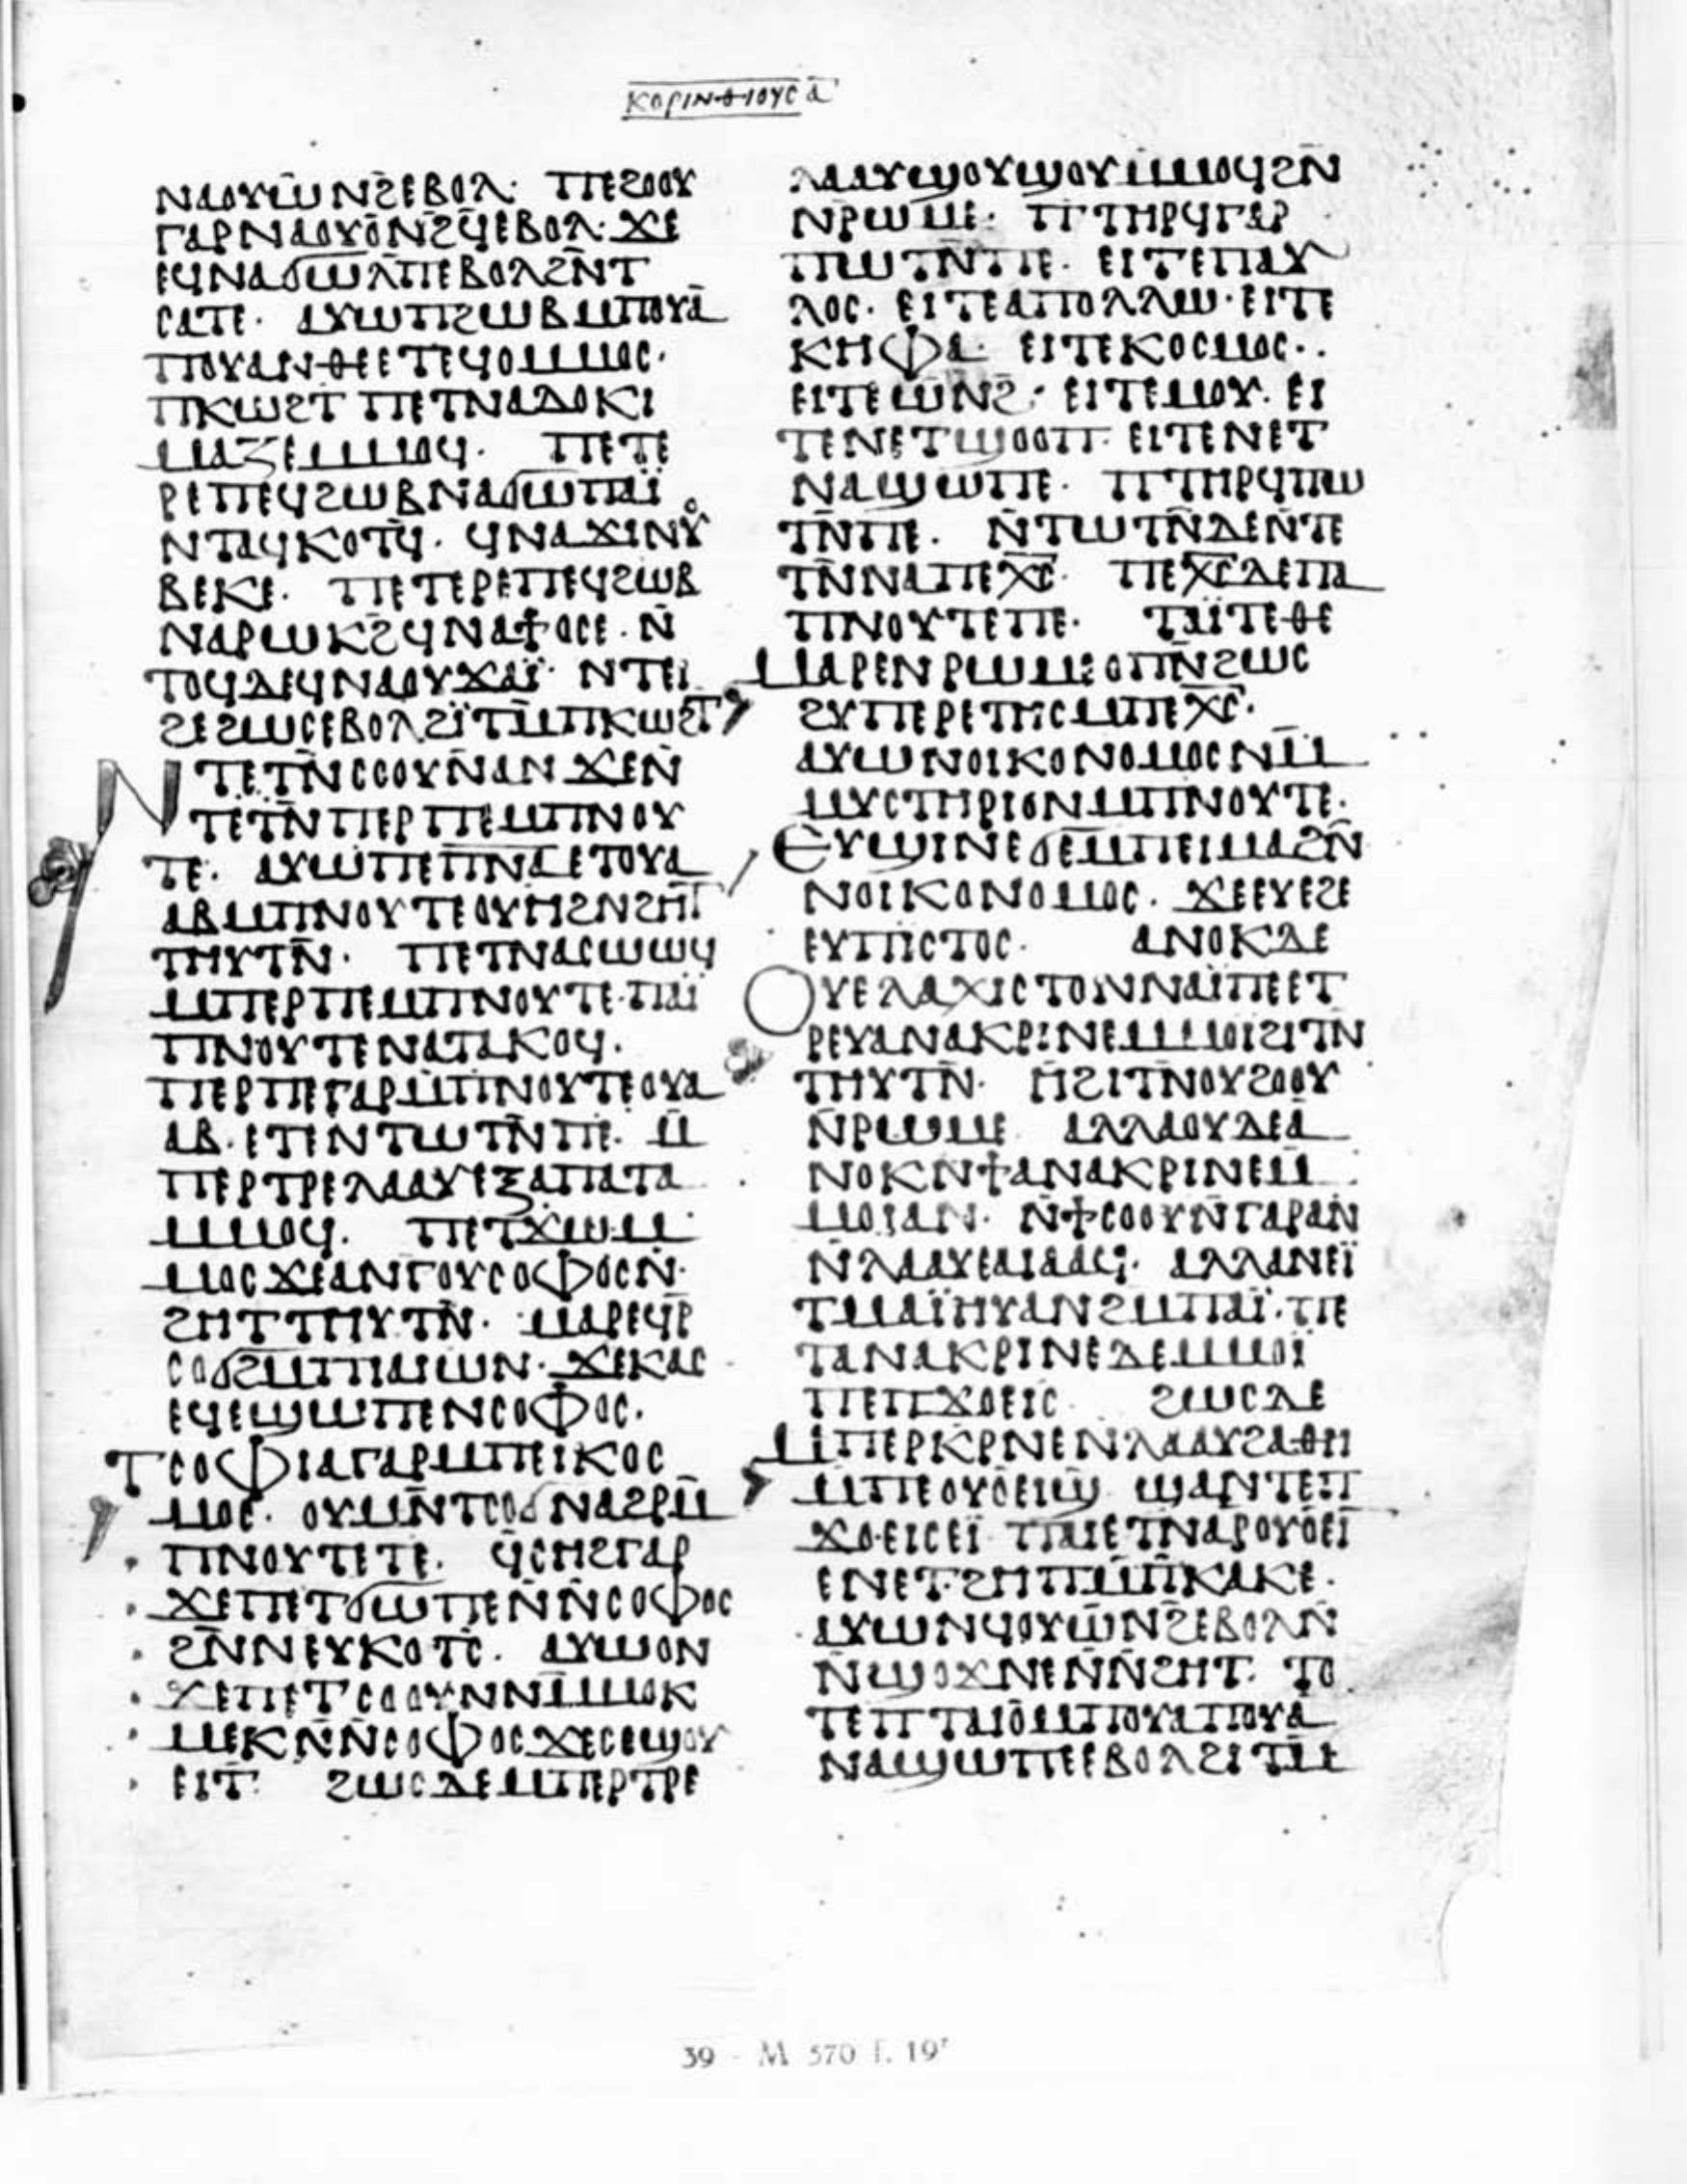 ⲕⲟⲣⲓⲛⲑⲓⲟⲩⲥ ⲁ̅
ⲛⲁⲟⲩⲱⲛϩⲉⲃⲟⲗ· ⲡⲉϩⲟⲟⲩ
ⲅⲁⲣⲛⲁⲟⲩⲟⲛϩϥⲉⲃⲟⲗ· ϫⲉ
ⲉϥⲛⲁϭⲱⲗⲡⲉⲃⲟⲗϩⲛ̅ⲧ
ⲥⲁⲧⲉ· ⲁⲩⲱⲡϩⲱⲃⲙ̅ⲡⲟⲩⲁ
ⲡⲟⲩⲁⲛⲑⲉⲉⲧⲉϥⲟⲙ̅ⲙⲟⲥ·
ⲡⲕⲱϩⲧⲡⲉⲧⲛⲁⲇⲟⲕⲓ
ⲙⲁⲍⲉⲙ̅ⲙⲟϥ· ⲡⲉⲧⲉ
ⲣⲉⲡⲉϥϩⲱⲃⲛⲁϭⲱⲡⲁⲓ̈
ⲛⲧⲁϥⲕⲟⲧϥ̅· ϥⲛⲁϫⲓⲛⲟⲩ
ⲃⲉⲕⲉ· ⲡⲉⲧⲉⲣⲉⲡⲉϥϩⲱⲃ
ⲛⲁⲣⲱⲕϩ̅ϥⲛⲁϯⲟⲥⲉ· ⲛ̅
ⲧⲟϥⲇⲉϥⲛⲁⲟⲩϫⲁⲓ̈· ⲛⲧⲉⲓ
ϩⲉϩⲱⲥⲉⲃⲟⲗϩⲓ̈ⲧⲙ̅ⲡⲕⲱϩⲧ̅
ⲛⲧⲉⲧⲛ̅ⲥⲟⲟⲩⲛ̅ⲁⲛϫⲉⲛ̅
ⲧⲉⲧⲛ̅ⲡⲉⲣⲡⲉⲙ̅ⲡⲛⲟⲩ
ⲧⲉ· ⲁⲩⲱⲡⲉⲡ̅ⲛ̅ⲁ̅ⲉⲧⲟⲩⲁ
ⲁⲃⲙ̅ⲡⲛⲟⲩⲧⲉⲟⲩⲏϩⲛϩⲏⲧ̅
ⲧⲏⲩⲧⲛ̅· ⲡⲉⲧⲛⲁⲥⲱⲱϥ
ⲙ̅ⲡⲉⲣⲡⲉⲙ̅ⲡⲛⲟⲩⲧⲉ·ⲡⲁⲓ̈
ⲡⲛⲟⲩⲧⲉⲛⲁⲧⲁⲕⲟϥ·
ⲡⲉⲣⲡⲉⲅⲁⲣⲙ̅ⲡⲛⲟⲩⲧⲉⲟⲩⲁ
ⲁⲃ·ⲉⲧⲉⲛⲧⲱⲧⲛ̅ⲡⲉ· ⲙ̅
ⲡⲉⲣⲧⲣⲉⲗⲁⲁⲩⲉⲝⲁⲡⲁⲧⲁ
ⲙ̅ⲙⲟϥ· ⲡⲉⲧϫⲱⲙ̅
ⲙⲟⲥϫⲉⲁⲛⲅⲟⲩⲥⲟⲫⲟⲥⲛ̅
ϩⲏⲧⲧⲏⲩⲧⲛ̅· ⲙⲁⲣⲉϥⲣ̅
ⲥⲟϭϩⲙ̅ⲡⲁⲓⲱⲛ· ϫⲉⲕⲁⲥ
ⲉϥⲉϣⲱⲡⲉⲛⲥⲟⲫⲟⲥ·
ⲧⲥⲟⲫⲓⲁⲅⲁⲣⲙ̅ⲡⲉⲓⲕⲟⲥ
ⲙⲟⲥ· ⲟⲩⲙⲛ̅ⲧⲥⲟϭⲛⲁϩⲣⲙ̅
ⲡⲛⲟⲩⲧⲉⲧⲉ· ϥⲥⲏϩⲅⲁⲣ
ϫⲉⲡⲉⲧϭⲱⲡⲉⲛ̅ⲛ̅ⲥⲟⲫⲟⲥ
ϩⲛ̅ⲛⲉⲩⲕⲟⲧⲥ̅· ⲁⲩⲱⲟⲛ
ϫⲉⲡⲉⲧⲥⲟⲟⲩⲛⲛⲙ̅ⲙⲟⲕ
ⲙⲉⲕⲛ̅ⲛ̅ⲥⲟⲫⲟⲥϫⲉⲥⲉϣⲟⲩ
ⲉⲓⲧ· ϩⲱⲥⲇⲉⲙ̅ⲡⲣ̅ⲧⲣⲉ
ⲗⲁⲁⲩϣⲟⲩϣⲟⲩⲙ̅ⲙⲟϥϩⲛ̅
ⲛⲣⲱⲙⲉ· ⲡⲧⲏⲣϥⲅⲁⲣ
ⲡⲱⲧⲛ̅ⲡⲉ· ⲉⲓⲧⲉⲡⲁⲩ
ⲗⲟⲥ· ⲉⲓⲧⲉⲁⲡⲟⲗⲗⲱ·ⲉⲓⲧⲉ
ⲕⲏⲫⲁ· ⲉⲓⲧⲉⲕⲟⲥⲙⲟⲥ·
ⲉⲓⲧⲉⲱⲛϩ̅· ⲉⲓⲧⲉⲙⲟⲩ· ⲉⲓ
ⲧⲉⲛⲉⲧϣⲟⲟⲡ· ⲉⲓⲧⲉⲛⲉⲧ
ⲛⲁϣⲱⲡⲉ· ⲡⲧⲏⲣϥⲡⲱ
ⲧⲛ̅ⲡⲉ· ⲛ̅ⲧⲱⲧⲛ̅ⲇⲉⲛ̅ⲧⲉ
ⲧⲛ̅ⲛⲁⲡⲉⲭ̅ⲥ̅· ⲡⲉⲭ̅ⲥ̅ⲇⲉⲡⲁ
ⲡⲛⲟⲩⲧⲉⲡⲉ· ⲧⲁⲓ̈ⲧⲉⲑⲉ
ⲙⲁⲣⲉⲛⲣⲱⲙⲉⲟⲡⲛ̅ϩⲱⲥ
ϩⲩⲡⲉⲣⲉⲧⲏⲥⲙ̅ⲡⲉⲭ̅ⲥ̅·
ⲁⲩⲱⲛⲟⲓⲕⲟⲛⲟⲙⲟⲥⲛⲙ̅
ⲙⲩⲥⲧⲏⲣⲓⲟⲛⲙ̅ⲡⲛⲟⲩⲧⲉ·
ⲉⲩϣⲓⲛⲉϭⲉⲙ̅ⲡⲉⲓⲙⲁϩⲛ̅
ⲛⲟⲓⲕⲟⲛⲟⲙⲟⲥ· ϫⲉⲉⲩⲉϩⲉ
ⲉⲩⲡⲓⲥⲧⲟⲥ· ⲁⲛⲟⲕⲇⲉ
ⲟⲩⲉⲗⲁⲭⲓⲥⲧⲟⲛⲛⲁⲓ̈ⲡⲉⲉⲧ
ⲣⲉⲩⲁⲛⲁⲕⲣⲓⲛⲉⲙ̅ⲙⲟⲓϩⲓⲧⲛ̅
ⲧⲏⲩⲧⲛ̅· ⲏϩⲓⲧⲛⲟⲩϩⲟⲟⲩ
ⲛ̅ⲣⲱⲙⲉ· ⲁⲗⲗⲁⲟⲩⲇⲉⲁ
ⲛⲟⲕⲛϯⲁⲛⲁⲕⲣⲓⲛⲉⲙ̅
ⲙⲟⲓⲁⲛ· ⲛ̅ϯⲥⲟⲟⲩⲛ̅ⲅⲁⲣⲁⲛ
ⲛ̅ⲗⲁⲁⲩⲉⲁⲓⲁⲁϥ· ⲁⲗⲗⲁⲛⲉⲓ̈
ⲧⲙⲁⲓ̈ⲏⲩⲁⲛϩⲙ̅ⲡⲁⲓ̈·ⲡⲉ
ⲧⲁⲛⲁⲕⲣⲓⲛⲉⲇⲉⲙ̅ⲙⲟⲓ̈
ⲡⲉⲡϫⲟⲉⲓⲥ· ϩⲱⲥⲇⲉ
ⲙ̅ⲡⲉⲣⲕⲣⲛⲉⲛⲗⲁⲁⲩϩⲁⲑⲏ
ⲙ̅ⲡⲉⲟⲩⲟⲉⲓϣ ϣⲁⲛⲧⲉⲡ
ϫⲟⲉⲓⲥⲉⲓ̈ ⲡⲁⲓⲉⲧⲛⲁⲣⲟⲩⲟⲉⲓ̈
ⲉⲛⲉⲧϩⲏⲡⲙ̅ⲡⲕⲁⲕⲉ·
ⲁⲩⲱⲛϥⲟⲩⲱⲛϩⲉⲃⲟⲗⲛ̅
ⲛ̅ϣⲟϫⲛⲉⲛ̅ⲛ̅ϩⲏⲧ· ⲧⲟ
ⲧⲉⲡⲧⲁⲓⲟⲙ̅ⲡⲟⲩⲁⲡⲟⲩⲁ
ⲛⲁϣⲱⲡⲉⲉⲃⲟⲗϩⲓⲧⲙ̅
39 - M 570 f. 19ʳ